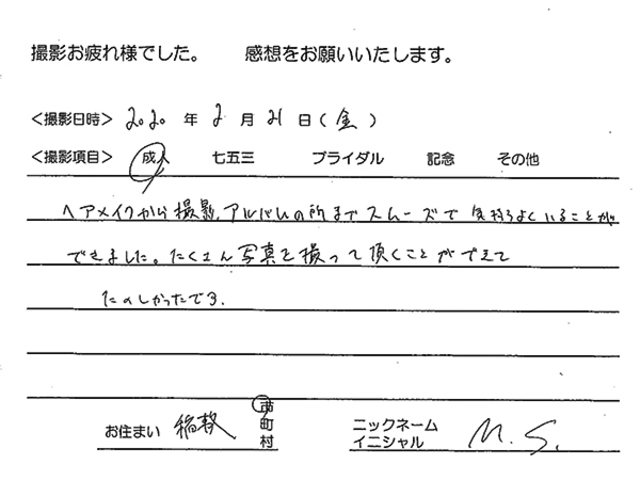 撮影お疲れ様でした。　感想をお願いいたします。
<撮影日時> 2020 年 2 月 21 日(金)
<撮影項目> 成人 七五三 ブライダル 記念 その他
ヘアメイクから撮影、アルバムの所までスムーズで気持ちよくいることが
できました。たくさん写真を撮って頂くことができて
たのしかったです.
お住まい 稲敷 市 町 村
ニックネーム イニシャル M.S.